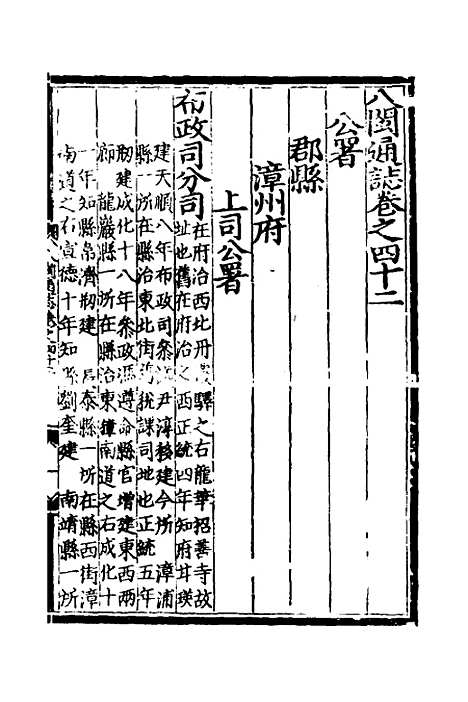 八閩通誌卷之四十二
公署
郡縣
漳州府
上司公署
布政司分司
在府治西北丹霞驛之右龍華招善寺故
址也舊在府治之西正統四年知府甘瑛
建天順八年布政司參政尹淳移建今所 漳浦
縣一所在縣治東北街 稅課司地也正統五年
剏建成化十八年參政馮遵命縣官增建東西兩
廊 龍巖縣一所在縣治東鎮南道之右成化十
一年知縣 濟剏建 長泰縣一所在縣西街漳
南道之右宣德十年知縣劉奎建 南靖縣一所